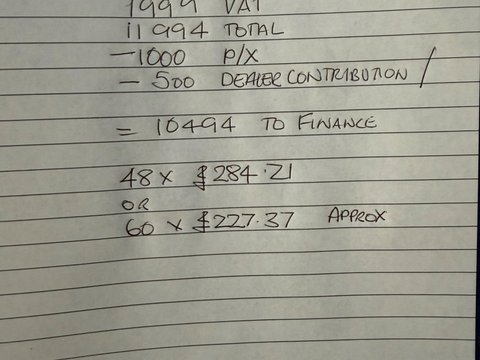 1999 VAT
11994 TOTAL
-1000 P/X
- 500 DEALER CONTRIBUTION /
= 10494 TO FINANCE
48 x $284.21
OR
60 x $227.37 APPROX